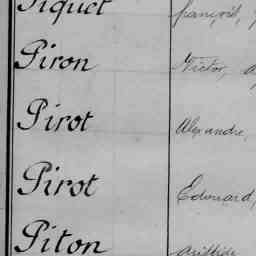 Piquet françois,
Piron Victor,
Pirot Alexandre,
Pirot Edouard,
Piton Aristide